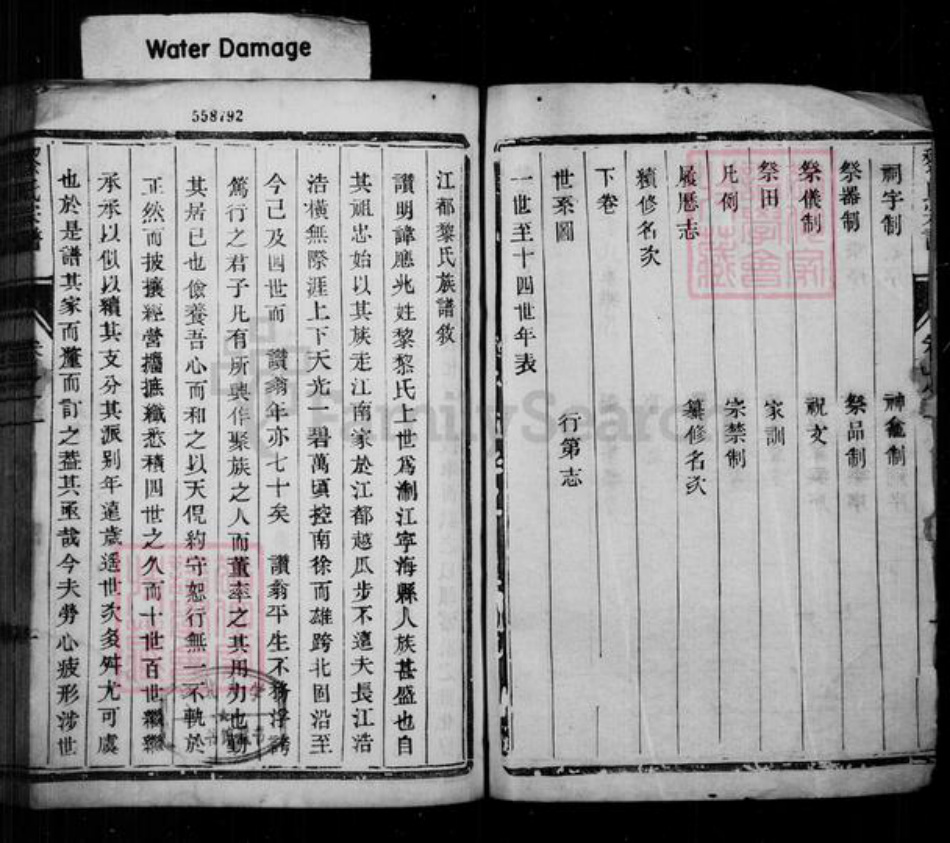 Water Damage
558792
祠宇制
神龕制
祭器制
祭品制
祭儀制
祝文
祭田
家訓
凡例
宗禁制
履歷志
纂修名次
續修名次
下卷
世系圖
行第志
一世至十四世年表
江都黎氏族譜敘
讚明諱應兆姓黎黎氏上世爲浙江寧海縣人族甚盛也自
其祖忠始以其族走江南家於江都越瓜步不遠夫長江浩
浩橫無際涯上下天光一碧萬頃控南徐而雄跨北固沿至
今已及四世而 讚翁年亦七十矣 讚翁平生不務浮誇
篤行之君子凡有所興作聚族之人而董率之其用力也勤
其居已也儉養吾心而和之以天倪約守恕行無一不軌於
正然而披攘經營攟摭纖悉積四世之久而十世百世繼繼
承承以似以續其支分其派別年遠歲遙世次多舛尤可虞
也於是譜其家而釐而訂之葢其亟哉今夫勞心疲形涉世
FamilySearch